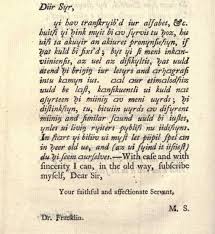 Diir Syr,
yi hav transkryib'd iur alfabet, &c.
huitſh yi þink myit bi ov syrvis tu ðoz, hu
uiſh to akuyir an akiuret pronynſieſhyn, if
ðat kuld bi fiks'd; byt yi si meni inkan-
viiniensis, az uel az difikyltis, ðat uuld
atend ði briŋiŋ iur letyrs and arþagrafi
intu kamyn ius. aal our etimaladſhiz
uuld be last, kansikuentli ui kuld nat
asyrteen ði miiniŋ av meni uyrds; ði
distinkſhyn, tu, bituiin uyrds av difyrent
miiniŋ and similar saund uuld bi iusles,
ynles ui liviŋ ryiters pybliſh nu iidiſhyns.
In ſhart yi biliiv ui myst let piipil spel an
in ðeer old ue, and (az ui fyind it iisiiest)
du ði seem aurselves.—With ease and with
sincerity I can, in the old way, subscribe
myself, Dear Sir,
Your faithful and affectionate Servant,
M. S.
Dr. Franklin.